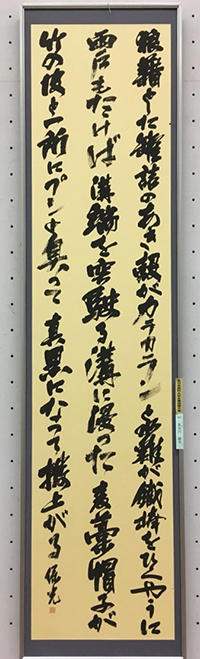 狼籍とした罐詰のあき殻がカラカランと水雞が鐵棒をひくやうに
雨戸もたゝけば溝端を突駛る溝に浸った麦藁帽子が
竹の皮と一所にプンと臭って真黒になって撥上がる